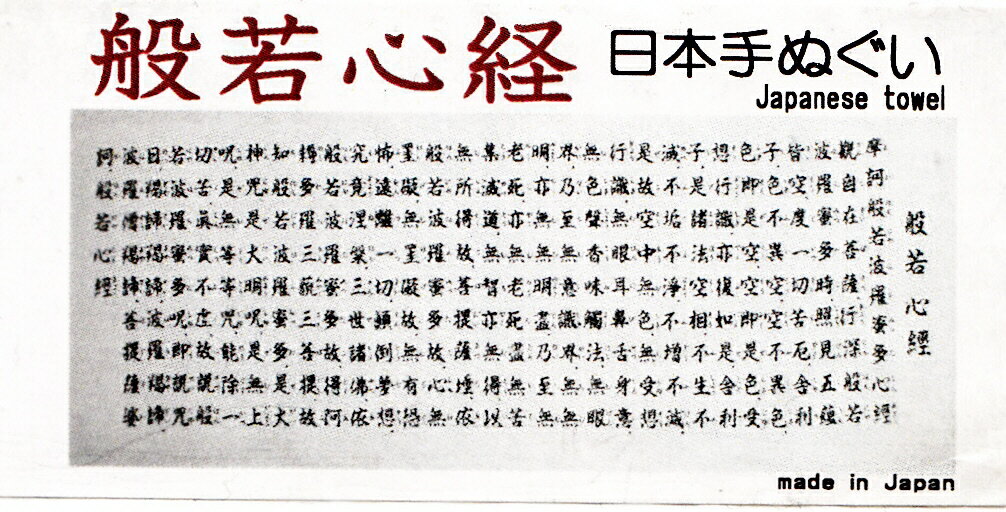 般若心経
日本手ぬぐい
Japanese towel
般若心經
摩訶般若波羅蜜多心經
觀自在菩薩行深般若
波羅蜜多時照見五蘊
皆空度一切苦厄舍利
子色不異空空不異色
色即是空空即是色受
想行識亦復如是舍利
子是諸法空相不生不
滅不垢不淨不增不減
是故空中無色無受想
行識無眼耳鼻舌身意
無色聲香味觸法無眼
界乃至無意識界無無
明亦無無明盡乃至無
老死亦無老死盡無苦
集滅道無智亦無得以
無所得故菩提薩埵依
般若波羅蜜多故心無
罣礙無罣礙故無有恐
怖遠離一切顛倒夢想
究竟涅槃三世諸佛依
般若波羅蜜多故得阿
耨多羅三藐三菩提故
知般若波羅蜜多是大
神咒是大明呪是無上
呪是無等等咒能除一
切苦眞實不虛故說般
若波羅蜜多呪即說咒
曰羯諦羯諦波羅羯諦
波羅僧羯諦菩提薩婆
訶般若心經
made in Japan